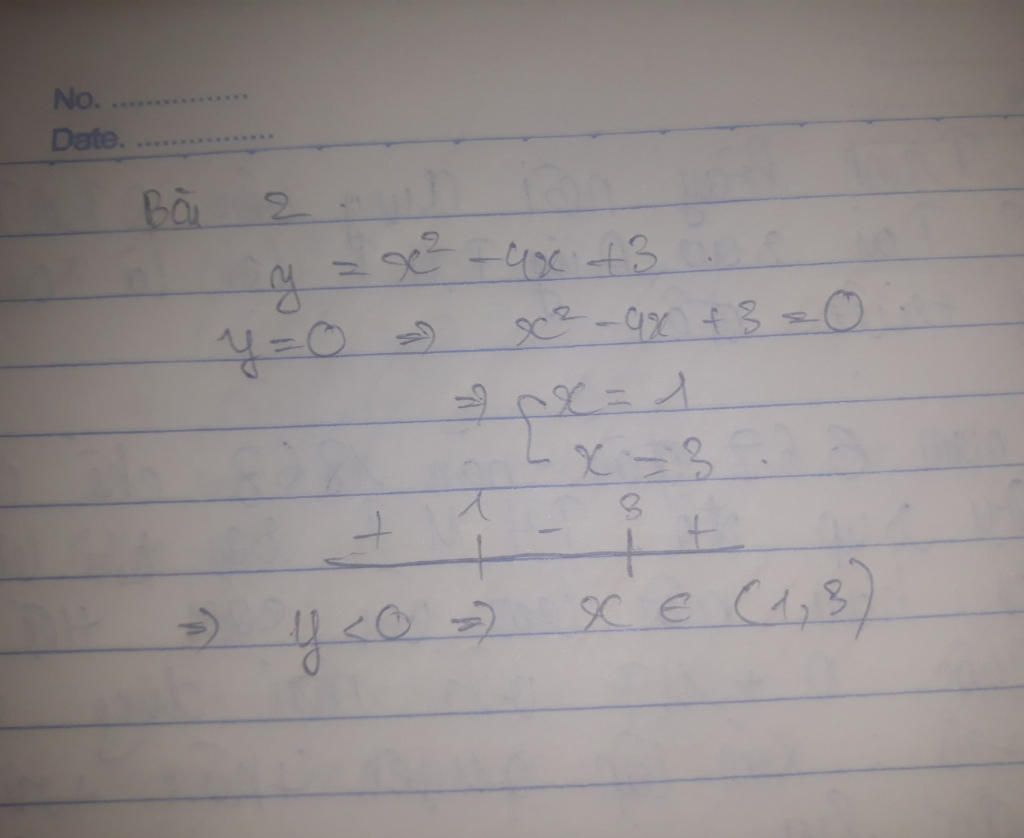 No. ................
Date. ................
Bài 2.
y = x² - 4x + 3.
y = 0 ⇒ x² - 4x + 3 = 0
⇒ [ x = 1
x = 3.
+ 1 - 3 +
⇒ y < 0 ⇒ x ∈ (1, 3)